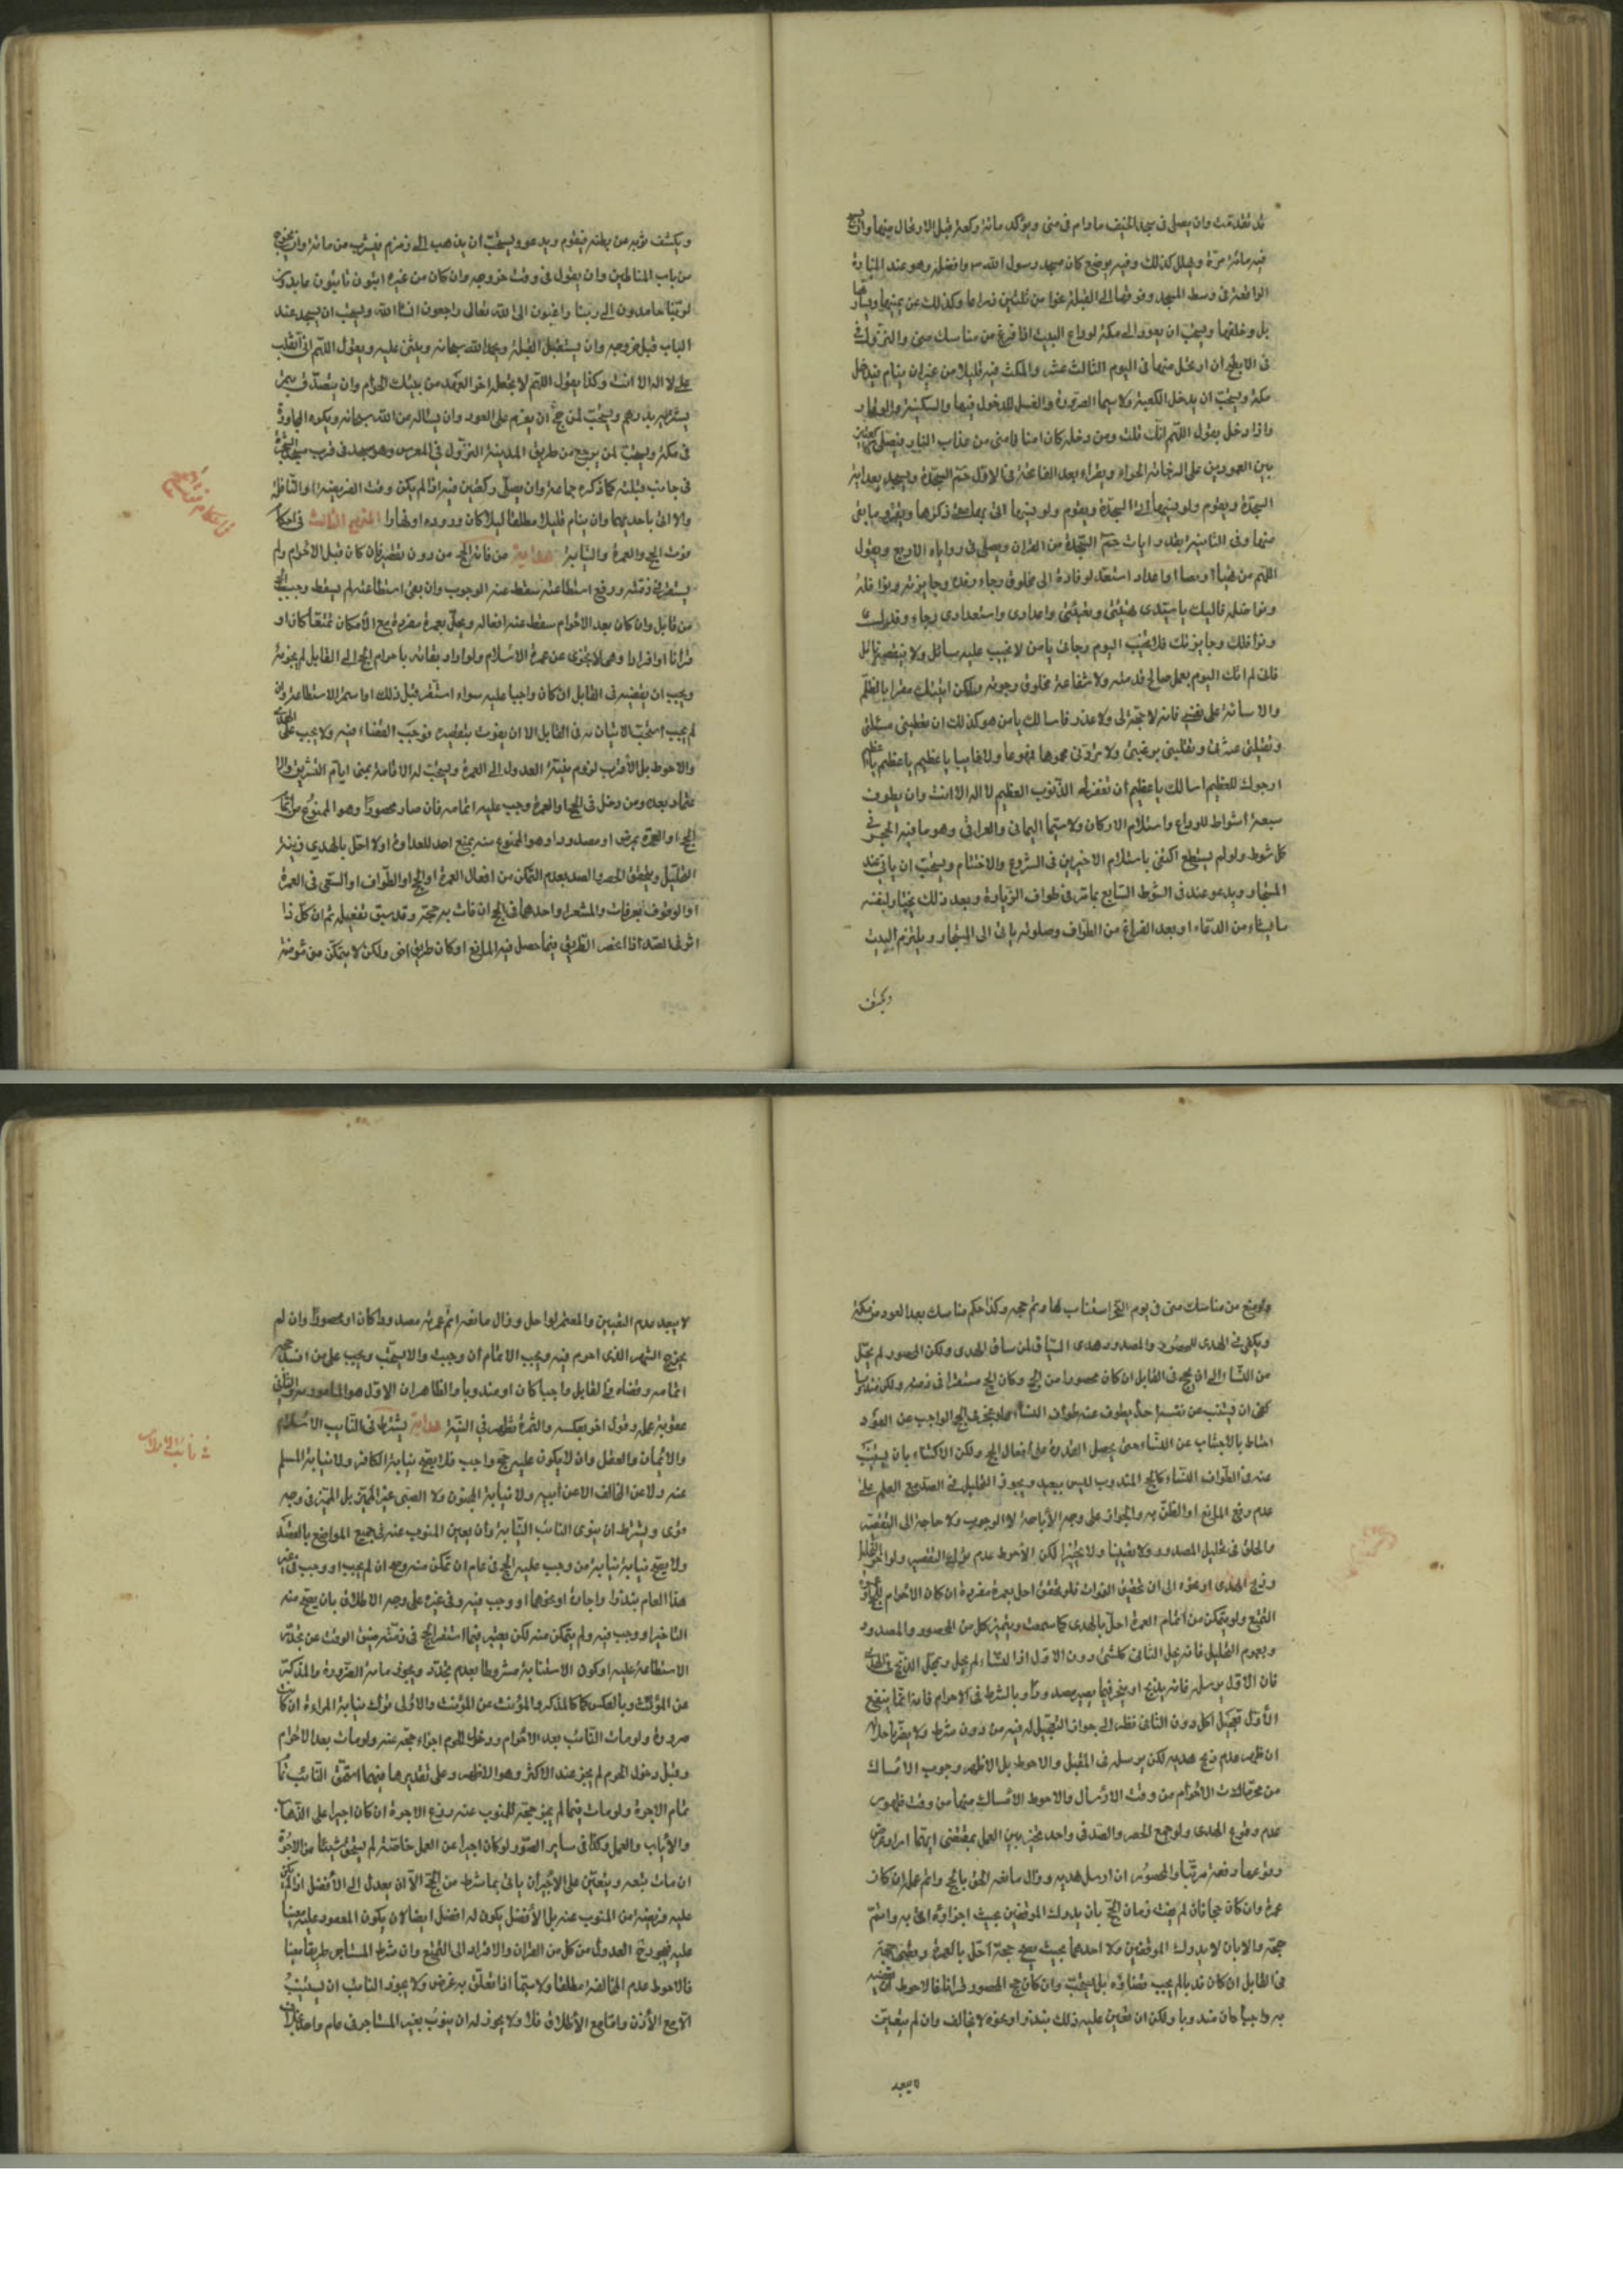 قد تقدمت وان يصلى فى مسجد الخيف ما دام فى منى ويؤكد مائة ركعة قبل الارتحال منها وان يسبح
فيه مائة مرة ويهلل كذلك وفيه موضع كان مسجد رسول الله ص وافضله وهو عند المنارة
الواقعة فى وسط المسجد وفوقها الى القبلة نحوا من ثلثين ذراعا وكذلك عن يمينها ويسارها
بل وخلفها ويستحب ان يعود الى مكة لوداع البيت اذا فرغ من مناسك منى والنزول فى
فى الابطح ان ارتحل منها فى اليوم الثالث عشر والمكث فيه قليلا من غير ان ينام فيدخل
مكة ويستحب ان يدخل الكعبة ولا سيما الصرورة والغسل للدخول فيها والسكينة والوقار
واذا دخل يقول اللهم انك قلت ومن دخله كان امنا فامنى من عذاب النار فيصلى ركعتين
بين العمودين على الرخامة الحمراء ويقراء بعد الفاتحة فى الاولى حم السجدة ويسجد بعد اية
السجدة ويقوم
منها وفى الثانية بقدر ايات حم السجدة من القران ويصلى فى زواياه الاربع ويقول
اللهم من تهيأ او تعبأ او اعد او استعد لوفادة الى مخلوق رجاء رفده وجايزته ونوافله
وفواضله فاليك يا سيدى تهيئتى وتعبئتى واعدادى واستعدادى رجاء رفدك
ونوافلك وجايزتك فلا تخيب اليوم رجائى يا من لا يخيب عليه سائل ولا ينقصه نائل
فانى لم اتك اليوم بعمل صالح قدمته ولا شفاعة مخلوق رجوته ولكن اتيتك مقرا بالظلم
والاسائة على نفسى فانه لا حجة لى ولا عذر فاسالك يا من هو كذلك ان تعطينى مسئلتى
وتقيلنى عثرتى وتقلبنى برغبتى ولا تردنى مجبوها ممنوعا ولا خايبا يا عظيم يا عظيم يا عظيم
ارجوك للعظيم اسالك يا عظيم ان تغفر لى الذنوب العظيم لا اله الا انت وان يطوف
سبعة اشواط للوداع واستلام الاركان ولا سيما اليمانى والعراقى وهو ما فيه الحجر فى
كل شوط ولو لم يستطع اكتفى باستلام الاخيرين فى الشروع والاختتام ويستحب ان ياتى عند
المستجار ويدعو عنده فى الشوط السابع بما مر فى طواف الزيارة وبعد ذلك يختار لنفسه
ما يشاء من الدعاء او بعد الفراغ من الطواف وصلوته ياتى الى المستجار ويلتزم البيت
ويكشف
ويكشف ثوبه عن بطنه فيقوم ويدعو ويستحب ان يذهب الى زمزم فيشرب من مائه وان يخرج
من باب الحناطين وان يقول فى وقت خروجه وان كان من غيره ائبون تائبون عابدون
لربنا حامدون الى ربنا راغبون الى الله تعالى راجعون انشا الله ويستحب ان يسجد عند
الباب قبل خروجه وان يستقبل القبلة ويحمد الله سبحانه ويثنى عليه ويقول اللهم انى انقلب
على لا اله الا انت وكذا يقول اللهم لا تجعله اخر العهد من بيتك الحرام وان يتصدق بتمر
يشتريه بدرهم ويستحب لمن حج ان يعزم على العود وان يساله من الله سبحانه ويكره المجاورة
فى مكة ويستحب لمن يرجع من طريق المدينة النزول فى المعرس وهو مسجد فى قرب مسجد الشجرة
فى جانب قبلته كما ذكره جماعة وان يصلى ركعتين فيه اذا لم يكن وقت الفريضة او النافلة
والا اتى باحديهما وان ينام قليلا مطلقا ليلا كان وروده او نهارا المنهج الثالث فى احكام
فوت الحج والعمرة والنيابة هداية من فاته الحج من دون تقصير فان كان قبل الاحرام ولم
يستقر فى ذمته ورفع استطاعته سقط عنه الوجوب وان بقى استطاعته لم يسقط وجب الحج
من قابل وان كان بعد الاحرام سقط عنه افعاله ويحل بعمرة مفردة مع الامكان تمتعا كان او
قرانا او افرادا وهى لا تجزى عن عمرة الاسلام ولو اراد بقائه باحرام الحج الى القابل لم يجزئه
ويجب ان يقضيه فى القابل ان كان واجبا عليه سواء استقر قبل ذلك او استمر الاستطاعة وان
لم يجب استحب الاتيان به فى القابل الا ان يفوت بتقصيره فوجب القضاء فيه ولا يجب على الهدى
والاحوط بل الاقرب لزوم نية العدول الى العمرة ويستحب له الاقامة بمنى ايام التشريق والا
عتمار بعده ومن دخل فى الحج او العمرة وجب عليه اتمامه فان صار محصورا وهو الممنوع من اتمام
الحج او العمرة بمرض او مصدودا وهو الممنوع منه بمنع احد للعداوة او لا احل بالهدي ونية
التحليل ويتحقق الحصر والصد بعدم التمكن من افعال العمرة او الحج او الطواف او السعى فى العمرة
او الوقوف بعرفات والمشعر او احدهما فى الحج ان فات به حجته وقد سبق تفصيله ثم ان كل ذا
اثر فى الصد اذا انحصر الطريق فيما حصل فيه المانع او كان طريق اخر ولكن لا يتمكن من مؤنته
ولو منع من مناسك منى فى يوم النحر استناب لها وتم حجه وكذا حكم مناسك بعد العود من مكة
ويكفى فى الهدى للمحصور والمصدود هدى السياق لمن ساق الهدى ولكن المحصور لم يحل
من النساء الى ان يحج فى القابل ان كان محصورا من الحج وكان الحج مستقرا فى ذمته ولكن مندوبا
كفى ان يستنيب من نفسه احدا يطوف عنه طواف النساء
احتاط بالاجتناب عن النساء حتى يحصل القدرة على افعال الحج ولكن الاكتفاء بان يستنيب
عنه فى الطواف النساء كالحج المندوب ليس ببعيد ويجوز التحليل فى الصد مع العلم على
عدم رفع المانع او الظن به والجواز على وجه الاباحة لا الوجوب ولا حاجة الى التقصير
والحلق فى تحليل المصدود ولا تعيينا ولا تخييرا لكن الاحوط عدم ترك التقصير ولو اخر التحليل
وذبح الهدى او نحره الى ان تحقق الفوات فلو تحقق احل بعمرة مفردة ان كان الاحرام للحج او عمرة
التمتع ولو لم يتمكن من اتمام العمرة احل بالهدى كما سمعت ويتميز كل من المحصور والمصدود
وبعموم التحليل فانه يحل الثانى كلشئ دون الاول اذ النساء لم يحل ومحل الذبح فى الهدى
فان الاول يرسله فانه يذبح او ينحر فيما يصير مصدودا وبالشرط فى الاحرام فانه انما ينفع
الاول تعجيل اكل دون الثانى نظرا الى جواز التعجيل له فيه من دون شرط ولا يضر باحلاله
ان ظهر عدم ذبح هديه لكن يرسله فى المقبل والاحوط بل الاظهر وجوب الامساك
من محرمات الاحرام من وقت الارسال والاحوط الامساك منها من وقت ظهور
عدم وقوع الهدى ولو جمع الحصر والصد فى واحد تخير بين العمل بمقتضى ايتهما اراد وعرض
وقوعها دفعة مرتبا والمحصور ان ارسل هديه وزال مانعه التحق بالحج واتم على ان كان
عمرة وان كان حجا فان لم يفت زمان الحج بان يدرك الموقفين بحيث اجزاؤه اتى به واتم
حجته والا بان لا يدرك الموقفين ولا احدهما بحيث يصح حجه احل بالعمرة وقضى حجة
فى القابل ان كان قد بالم يجب قضاؤه بل يستحب وان كان حج المحصور قرانا فالاحوط ان يقضيه
به واجبا كان مندوبا ولكن ان تعين عليه ذلك بنذر او نحوه لا يخالف وان لم يتعين
لا يبعد
لا يبعد عدم التعيين والمعتمر لو احل وزال مانعه اتم عمرته مصدودا كان او محصورا وان لم
يخرج الشهر الذى احرم فيه ويجب الاتمام ان وجبت والا يستحب ويجب على من افسد حجه
اتمامه وقضاه فى القابل واجبا كان او مندوبا والظاهر ان الاول هو المامور به والثانى
عقوبة على وقول اخر بعكسه والثمرة تظهر فى النية هداية يشترط فى النايب الاسلام
والايمان والعقل وان لا يكون عليه حج واجب فلا يصح نيابة الكافر ولا نيابة المسلم
عنه ولا عن المخالف الا عن ابيه ولا نيابة المجنون ولا الصبى غير المميز بل المميز فى وجه
قوى ويشترط ان ينوى النائب النيابة وان يعين المنوب عنه فى جميع المواضع بالقصد
ولا يصح نيابة نيابة من وجب عليه الحج فى عام ان تمكن منه ويصح ان لم يجب او وجب فى غير
هذا العام بنذر او اجارة او نحوهما او وجب فيه وفى غيره على وجه الاطلاق بان يصح منه
التاخير او وجب فيه ولم يتمكن منه لكن يعتبر فيما استقر الحج فى ذمته ضيق الوقت عن تجدد
الاستطاعة عليه او كون الاستنابة مشروطا بعدم تجدد ويجوز نيابة الصرورة والمذكر
عن المؤنث وبالعكس كما كالمذكر والمؤنث عن المؤنث والاولى ترك نيابة المراءة ان كانت
صرورة ولو مات النائب بعد الاحرام ودخل الحرم اجزاء حجه عنه ولو مات بعد الاحرام
وقبل دخول الحرم لم يجز عند الاكثر وهو الاظهر وعلى تقديرها فيهما استحق النائب تما
تمام الاجرة ولو مات فيما لم يجز حجته للمنوب عنه وزع الاجرة ان كان اجيرا على الذهاب
والاياب والعمل وكذا فى ساير الصور ولو كان اجيرا عن العمل خاصة لم يستحق شيئا من الاجرة
ان مات قبله ويتعين على الاجير ان ياتى بما شرط من الحج الا ان يعدل الى الافضل اذا لم يكن
عليه فريضة من المنوب عنه بل الافضل يكون له افضل ايضا لا ان يكون المعمود عليه معينا
عليه فيجوز ح العدول من كل من القران والافراد الى التمتع وان شرط المستاجر طريقا معينا
فالاحوط عدم المخالفة مطلقا ولا سيما اذا تعلق به غرض ولا يجوز النائب ان يستنيب
الا مع الاذن واما مع الاطلاق فلا ولا يجوز له ان ينوب بغير المستاجر فى عام واحد